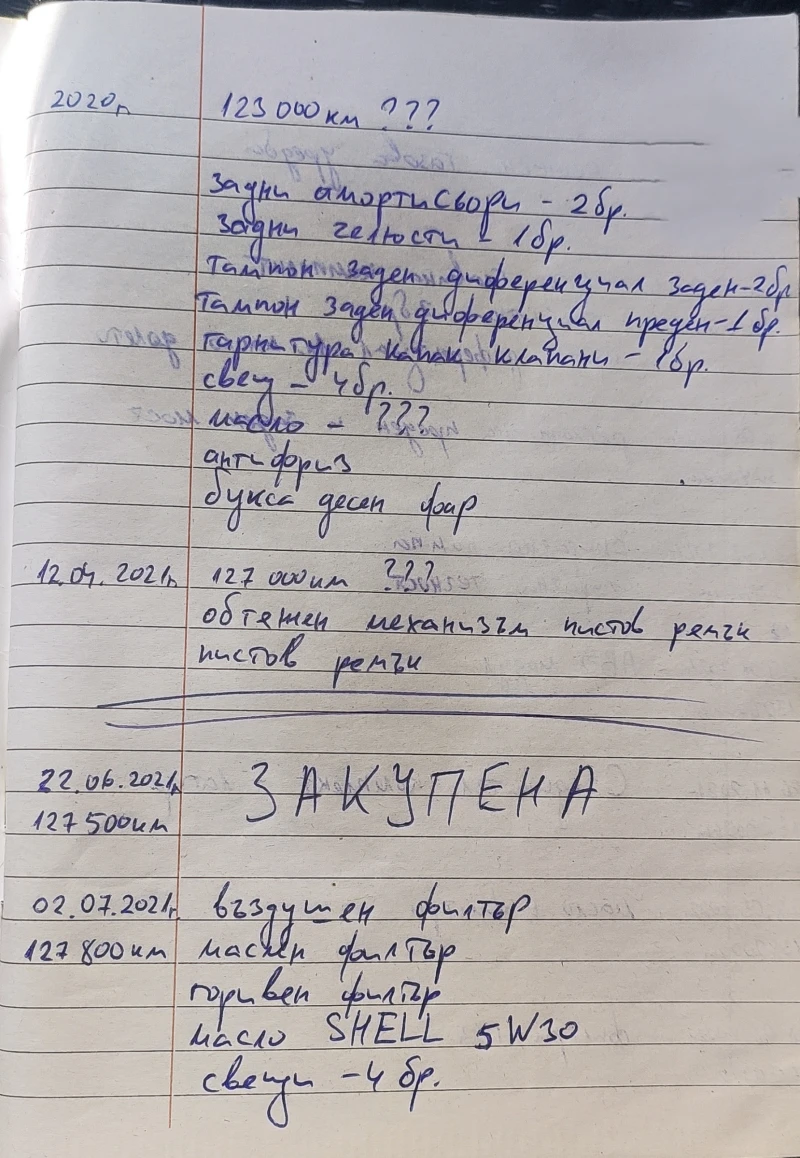 2020г. 123 000км ???
Задни амортисьори - 2бр.
Задни челюсти - 1бр.
Тампон заден диференциал заден-2бр
Тампон заден диференциал преден-1бр.
гарнитура капак клапани - 1бр.
свещи - 4бр.
масло - ???
антифриз
букса десен фар
12.04.2021г. 127 000км ???
обтяжен механизъм пистов ремък
пистов ремък
22.06.2021г. ЗАКУПЕНА
127 500км
02.07.2021г. въздушен филтър
127 800км маслен филтър
горивен филтър
масло SHELL 5W30
свещи - 4 бр.